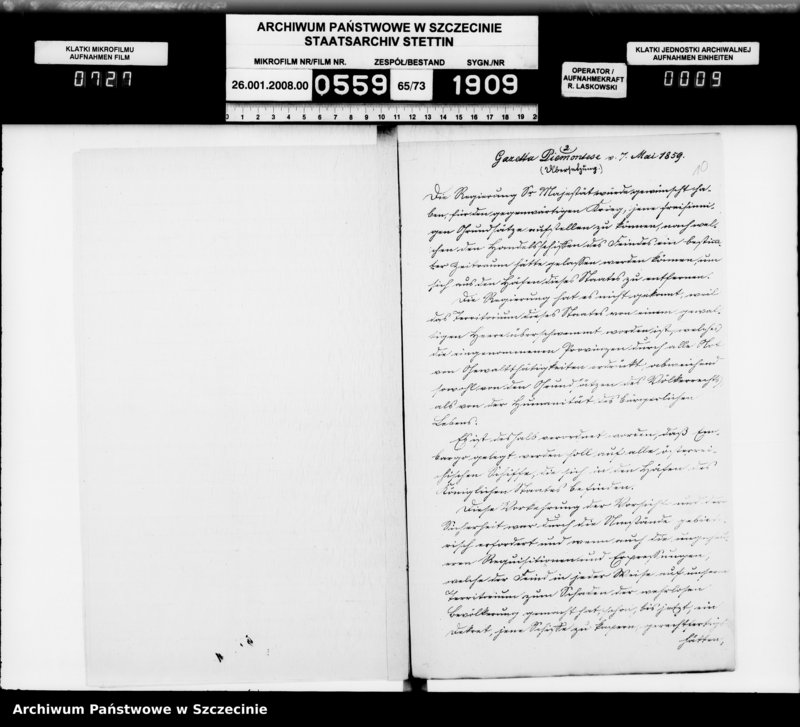 ARCHIWUM PAŃSTWOWE W SZCZECINIE
STAATSARCHIV STETTIN
MIKROFILM NR/FILM NR. ZESPÓŁ/BESTAND SYGN./NR
26.001.2008.00 0559 65/73 1909
KLATKI MIKROFILMU
AUFNAHMEN FILM
0727
OPERATOR /
AUFNAHMEKRAFT
R. LASKOWSKI
KLATKI JEDNOSTKI ARCHIWALNEJ
AUFNAHMEN EINHEITEN
0009
0 1 2 3 4 5 6 7 8 9 10 11 12 13 14 15 16 17 18 19 2
2
Gazetta Piemontese v. 7. Mai 1859.
(Übersetzung.)
10
Die Regierung Sr Majestät würde gewünscht ha-
ben, für den gegenwärtigen Krieg, jene freisinni-
gen Grundsätze aufstellen zu können, nach wel-
chen den Handelsschiffen des Feindes ein bestimm-
ter Zeitraum hätte gelassen werden können, um
sich aus den Häfen dieses Staates zu entfernen.
Die Regierung hat es nicht gekonnt, weil
das Territorium dieses Staates von einem gewal-
tigen Heere überschwemmt worden ist, welches
die eingenommenen Provinzen durch alle Art
von Gewaltthätigkeiten erdrückt, abweichend
sowohl von den Grundsätzen des Völkerrechts,
als von der Humanität des bürgerlichen
Lebens.
Es ist deshalb verordnet worden, daß Em-
bargo gelegt werden soll, auf alle österrei-
chischen Schiffe, die sich in den Häfen des
Königlichen Staates befinden.
Diese Vorkehrung der Vorsicht und der
Sicherheit war durch die Umstände gebie-
risch erfordert und wenn auch die ungeheu-
ren Requisitionen und Erpressungen,
welche der Feind in jeder Weise auf unserm
Territorium zum Schaden der wehrlosen
Bevölkerung gemacht hat, schon, bis jetzt, ein
Dekret, jene Schiffe zu kapern, gerechtfertigt
hätten,
Archiwum Państwowe w Szczecinie